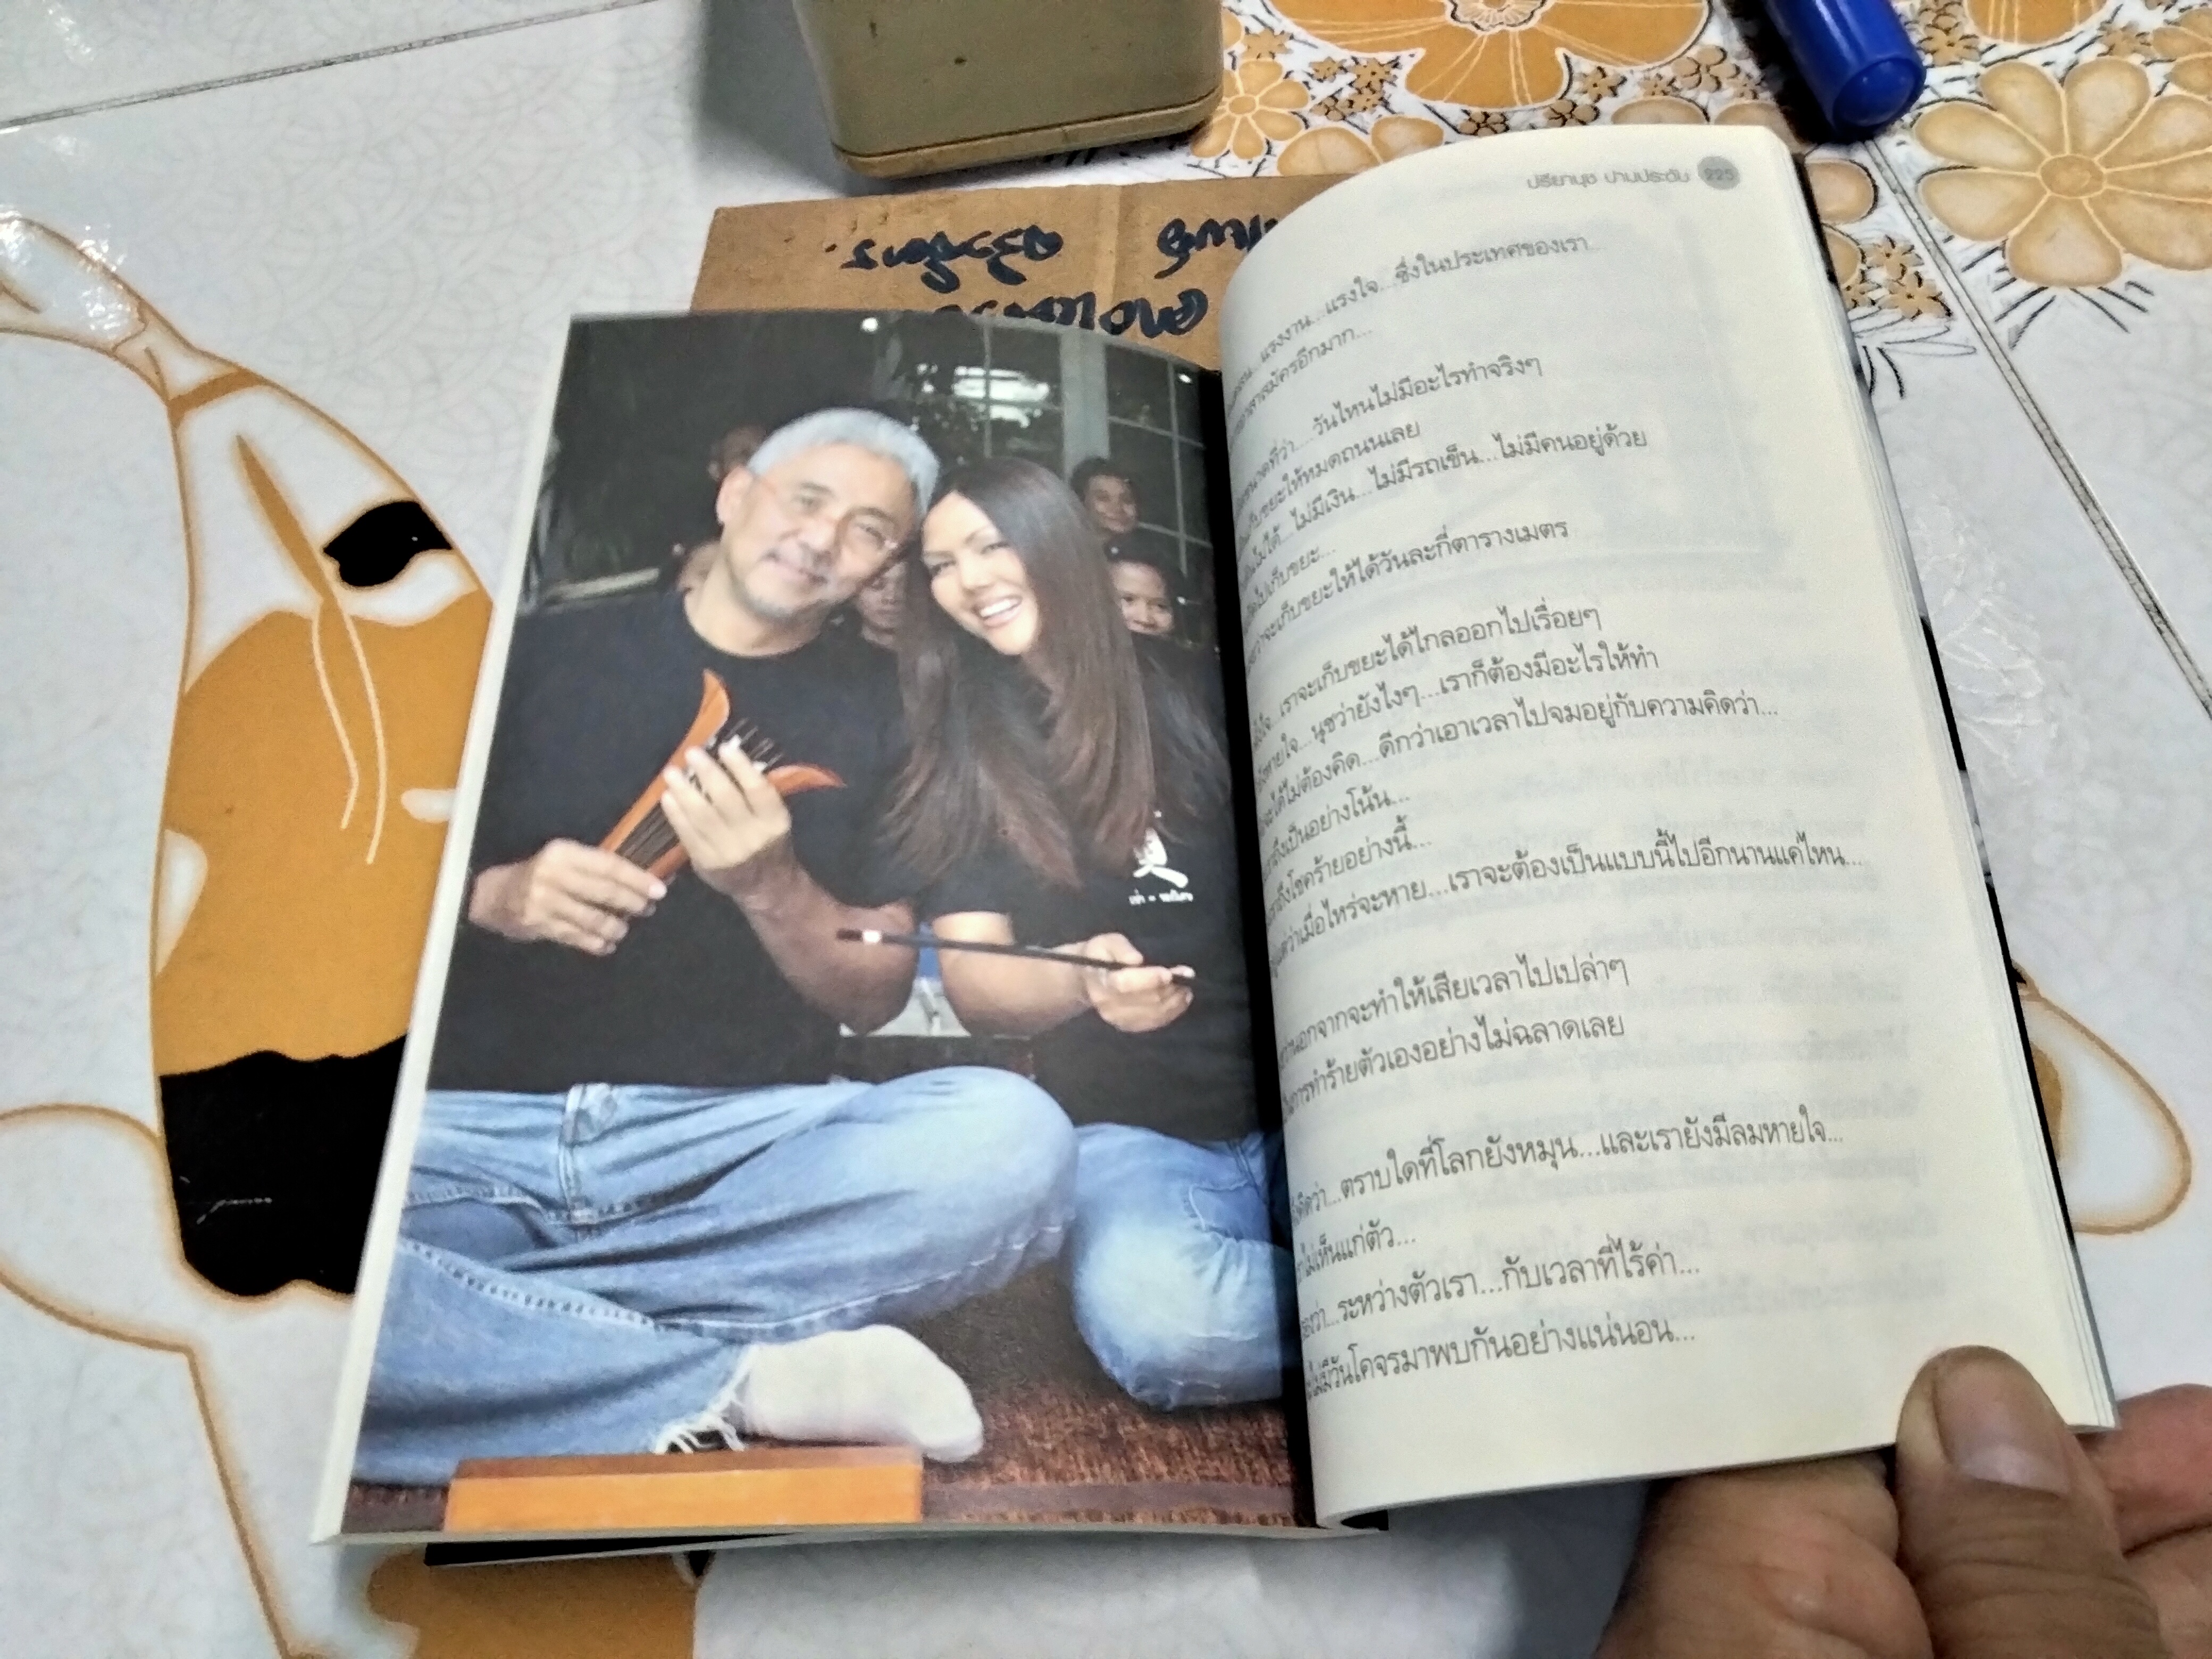 ปรียานุช ปานประดับ 225
แรงงาน...แรงใจ...ซึ่งในประเทศของเรา...
อาสาสมัครอีกมาก...
ที่ว่า...วันไหนไม่มีอะไรทำจริงๆ
เก็บขยะให้หมดถนนเลย
ไม่ได้...ไม่มีเงิน...ไม่มีรถเข็น...ไม่มีคนอยู่ด้วย
ไปเก็บขยะ...
จะเก็บขยะให้ได้วันละกี่ตารางเมตร
เราจะเก็บขยะได้ไกลออกไปเรื่อยๆ
หายใจ...นุชว่ายังไงๆ...เราก็ต้องมีอะไรให้ทำ
จะได้ไม่ต้องคิด...ดีกว่าเอาเวลาไปจมอยู่กับความคิดว่า...
ถึงเป็นอย่างโน้น...
ถึงโชคร้ายอย่างนี้...
ว่าเมื่อไหร่จะหาย...เราจะต้องเป็นแบบนี้ไปอีกนานแค่ไหน...
นอกจากจะทำให้เสียเวลาไปเปล่าๆ
การทำร้ายตัวเองอย่างไม่ฉลาดเลย
คิดว่า...ตราบใดที่โลกยังหมุน...และเรายังมีลมหายใจ...
ไม่เห็นแก่ตัว...
ว่า...ระหว่างตัวเรา...กับเวลาที่ไร้ค่า...
ไม่มีวันโคจรมาพบกันอย่างแน่นอน...